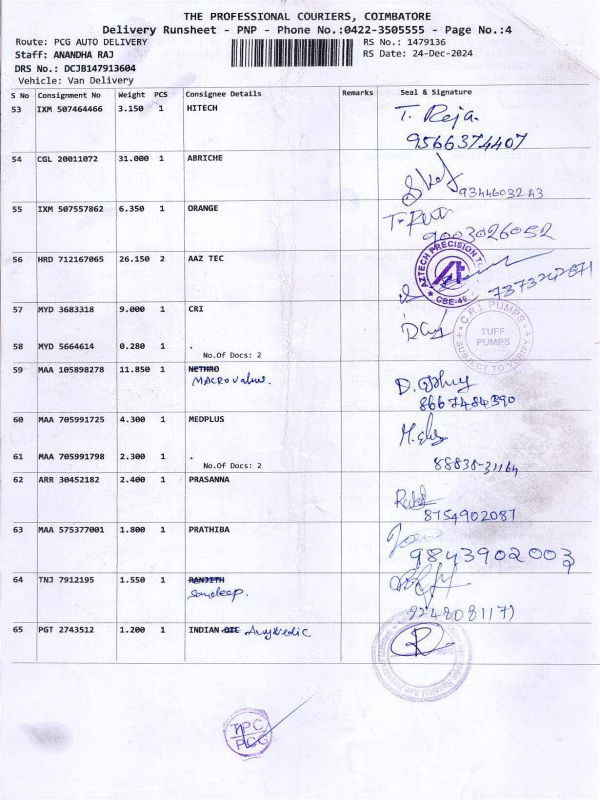 THE PROFESSIONAL COURIERS, COIMBATORE
Delivery Runsheet - PNP - Phone No.:0422-3505555 - Page No.:4
Route: PCG AUTO DELIVERY
RS No.: 1479136
Staff: ANANDHA RAJ
RS Date: 24-Dec-2024
DRS No.: DCJB147913604
Vehicle: Van Delivery
S No Consignment No Weight PCS Consignee Details Remarks Seal & Signature
53 IXM 507464466 3.150 1 HITECH T. Raja.
9566374407
54 CGL 20011072 31.000 1 ABRICHE
9344603243
55 IXM 507557862 6.350 1 ORANGE
9003026052
56 HRD 712167065 26.150 2 AAZ TEC
AZTECH PRECISION
CBE-49
57 MYD 3683318 9.000 1 CRI
C.R.I. PUMPS
TUFF
PUMPS
SUBJECT TO VERIFY
58 MYD 5664614 0.280 1 .
No.Of Docs: 2
59 MAA 105898278 11.850 1 NETHRO
MACRO Valves.
8667484390
60 MAA 705991725 4.300 1 MEDPLUS
61 MAA 705991798 2.300 1 .
88838-31164
No.Of Docs: 2
62 ARR 30452182 2.400 1 PRASANNA
8754902087
63 MAA 575377001 1.800 1 PRATHIBA
9843902003
64 TNJ 7912195 1.550 1 RANJITH
Sandeep.
65 PGT 2743512 1.200 1 INDIAN OIL Ayurvedic
TPC
PCG